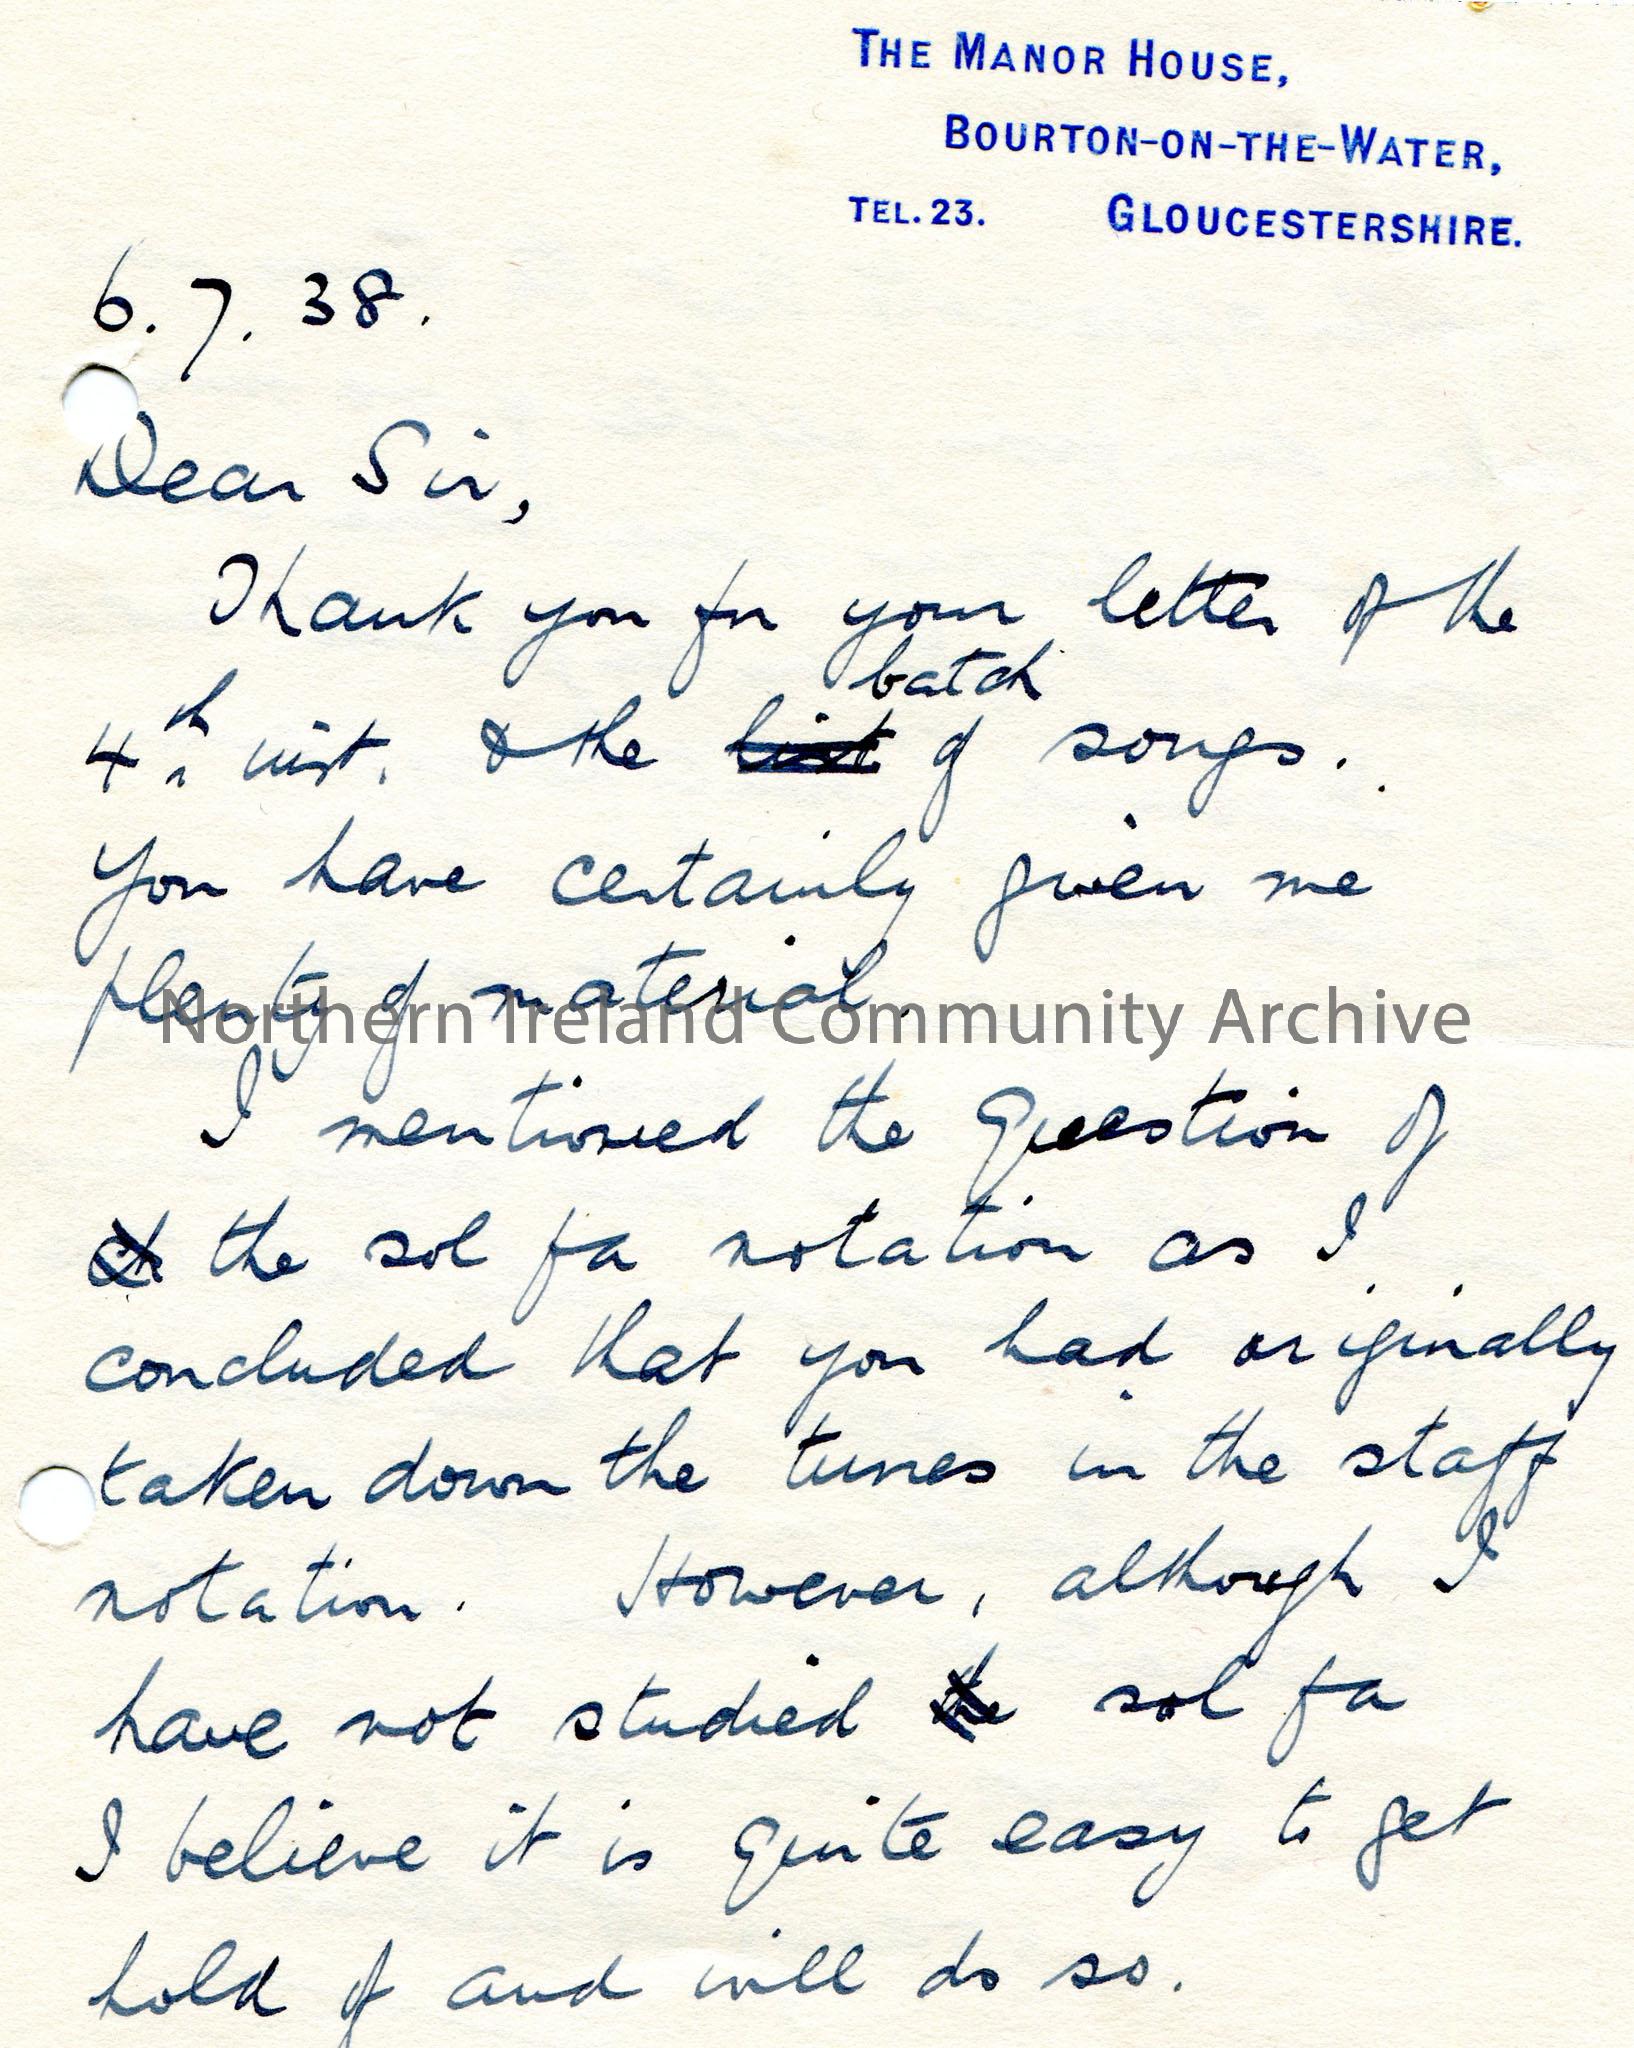 THE MANOR HOUSE,
BOURTON-ON-THE-WATER,
TEL. 23. GLOUCESTERSHIRE.
6. 7. 38.
Dear Sir,
Thank you for your letter of the
batch
4th inst. & the list of songs.
You have certainly given me
plenty of material.
Northern Ireland Community Archive
I mentioned the question of
the sol fa notation as I
concluded that you had originally
taken down the tunes in the staff
notation. However, although I
have not studied the sol fa
I believe it is quite easy to get
hold of and will do so.